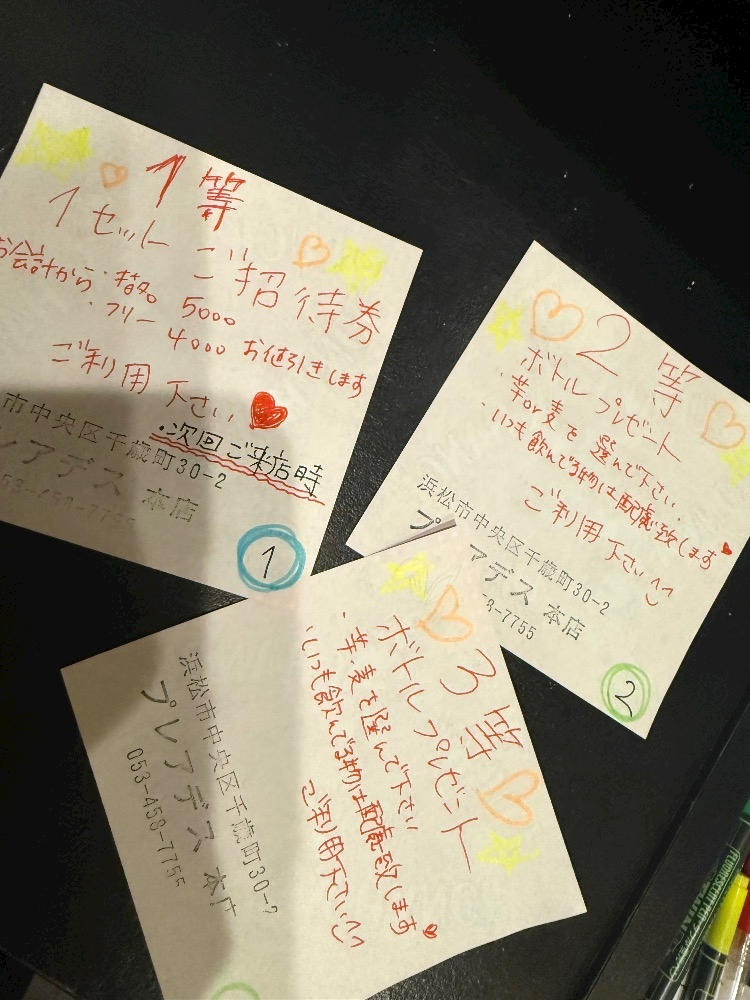 1等
1セットご招待券
お会計から・指名 5000
・フリー 4000 お値引きします
ご利用下さい
・次回ご来店時
市中央区千歳町30-2
レアデス 本店
53-458-7755
1
2等
ボトルプレゼント
・芋or麦を選んで下さい
・いつも飲んでる物は配慮致します
ご利用下さい
浜松市中央区千歳町30-2
プ アデス 本店
58-7755
2
3等
ボトルプレゼント
・芋、麦を選んで下さい
・いつも飲んでる物は配慮致します
ご利用下さい
浜松市中央区千歳町30-2
プレアデス 本店
053-458-7755